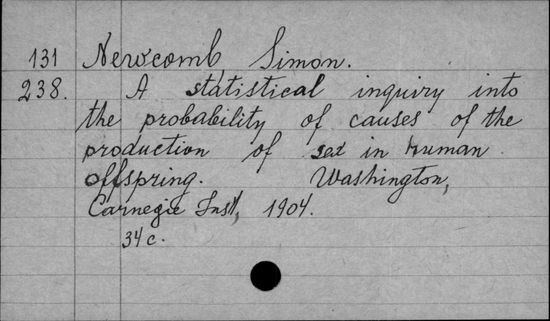 131 Newcomb Simon.
238. A statistical inquiry into
the probability of causes of the
production of sex in human
offspring. Washington,
Carnegie Inst, 1904.
34 c.